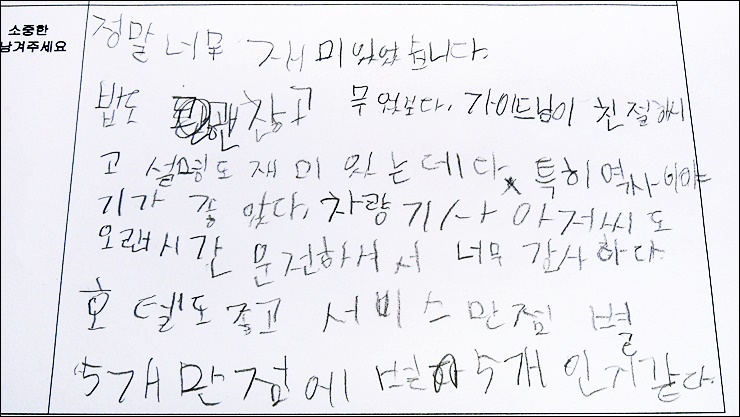 소중한
남겨주세요
정말 너무 재미있었습니다.
밥도 괜찮고 무엇보다. 가이드님이 친절하시
고 설명도 재미있는데다 특히 역사이야
기가 좋았다. 차량기사 아저씨도
오랜시간 운전하셔서 너무 감사하다
호텔도 좋고 서비스만점 별
5개 만점에 별 5개 인거같다.